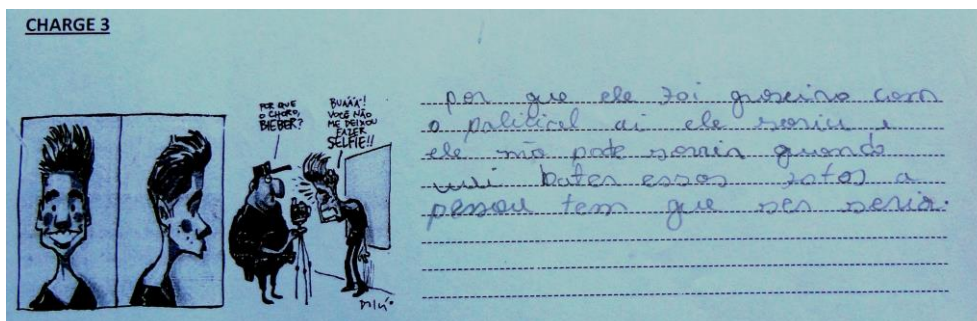 CHARGE 3
POR QUE
O CHORO,
BIEBER?
BUÁÁÁ!
VOCÊ NÃO
ME DEIXOU
FAZER
SELFIE!!
por que ele foi groseiro com
o policial ai ele sorriu e
ele não pode sorrir quando
vai bater essas fotos a
pessoa tem que ser seria.